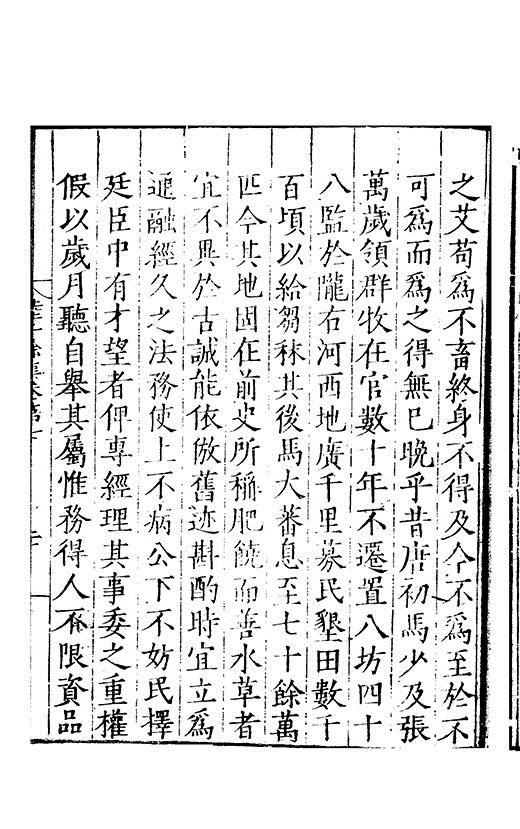 之艾苟爲不畜終身不得及今不爲至於不
可爲而爲之得無已晚乎昔唐初馬少及張
萬歲領群牧在官數十年不遷置八坊四十
八監於隴右河西地廣千里募民墾田數千
百頃以給芻秣其後馬大蕃息至七十餘萬
匹今其地固在前史所稱肥饒而善水草者
宜不異於古誠能依倣舊迹斟酌時宜立爲
通融經久之法務使上不病公下不妨民擇
廷臣中有才望者俾專經理其事委之重權
假以歲月聽自舉其屬惟務得人不限資品